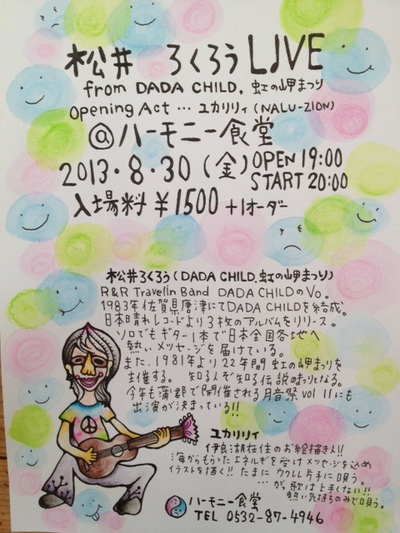 松井 ろくろう LIVE
from DADA CHILD, 虹の岬まつり
Opening Act … ユカリリィ (NALU-ZION)
@ハーモニー食堂
2013・8・30 (金) OPEN 19:00
START 20:00
入場料 ¥1500 +1オーダー
松井ろくろう (DADA CHILD, 虹の岬まつり)
R&R Travelln Band DADA CHILDのVo.
1983年佐賀県唐津にてDADA CHILDを結成。
日本晴れレコードより3枚のアルバムをリリース。
ソロでもギター1本で日本全国各地へ
熱いメッセージを届けている。
また、1981年より22年間虹の岬まつりを
主催する。知る人ぞ知る伝説のまつりとなる。
今年も蒲郡で開催される月音祭 vol 11にも
出演が決まっている!!
ユカリリィ
伊良湖在住のお絵描き人!!
海からもらったエネルギを受けメッセージを込め
イラストを描く!! たまにウクレレ片手に唄う。
…が、歌は上手くない!!
熱い気持ちのみで唄う。
ハーモニー食堂
TEL 0532-87-4946